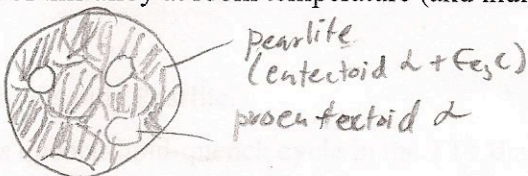 alloy at room temperature (and
pearlite
(eutectoid α + Fe₃C)
proeutectoid α